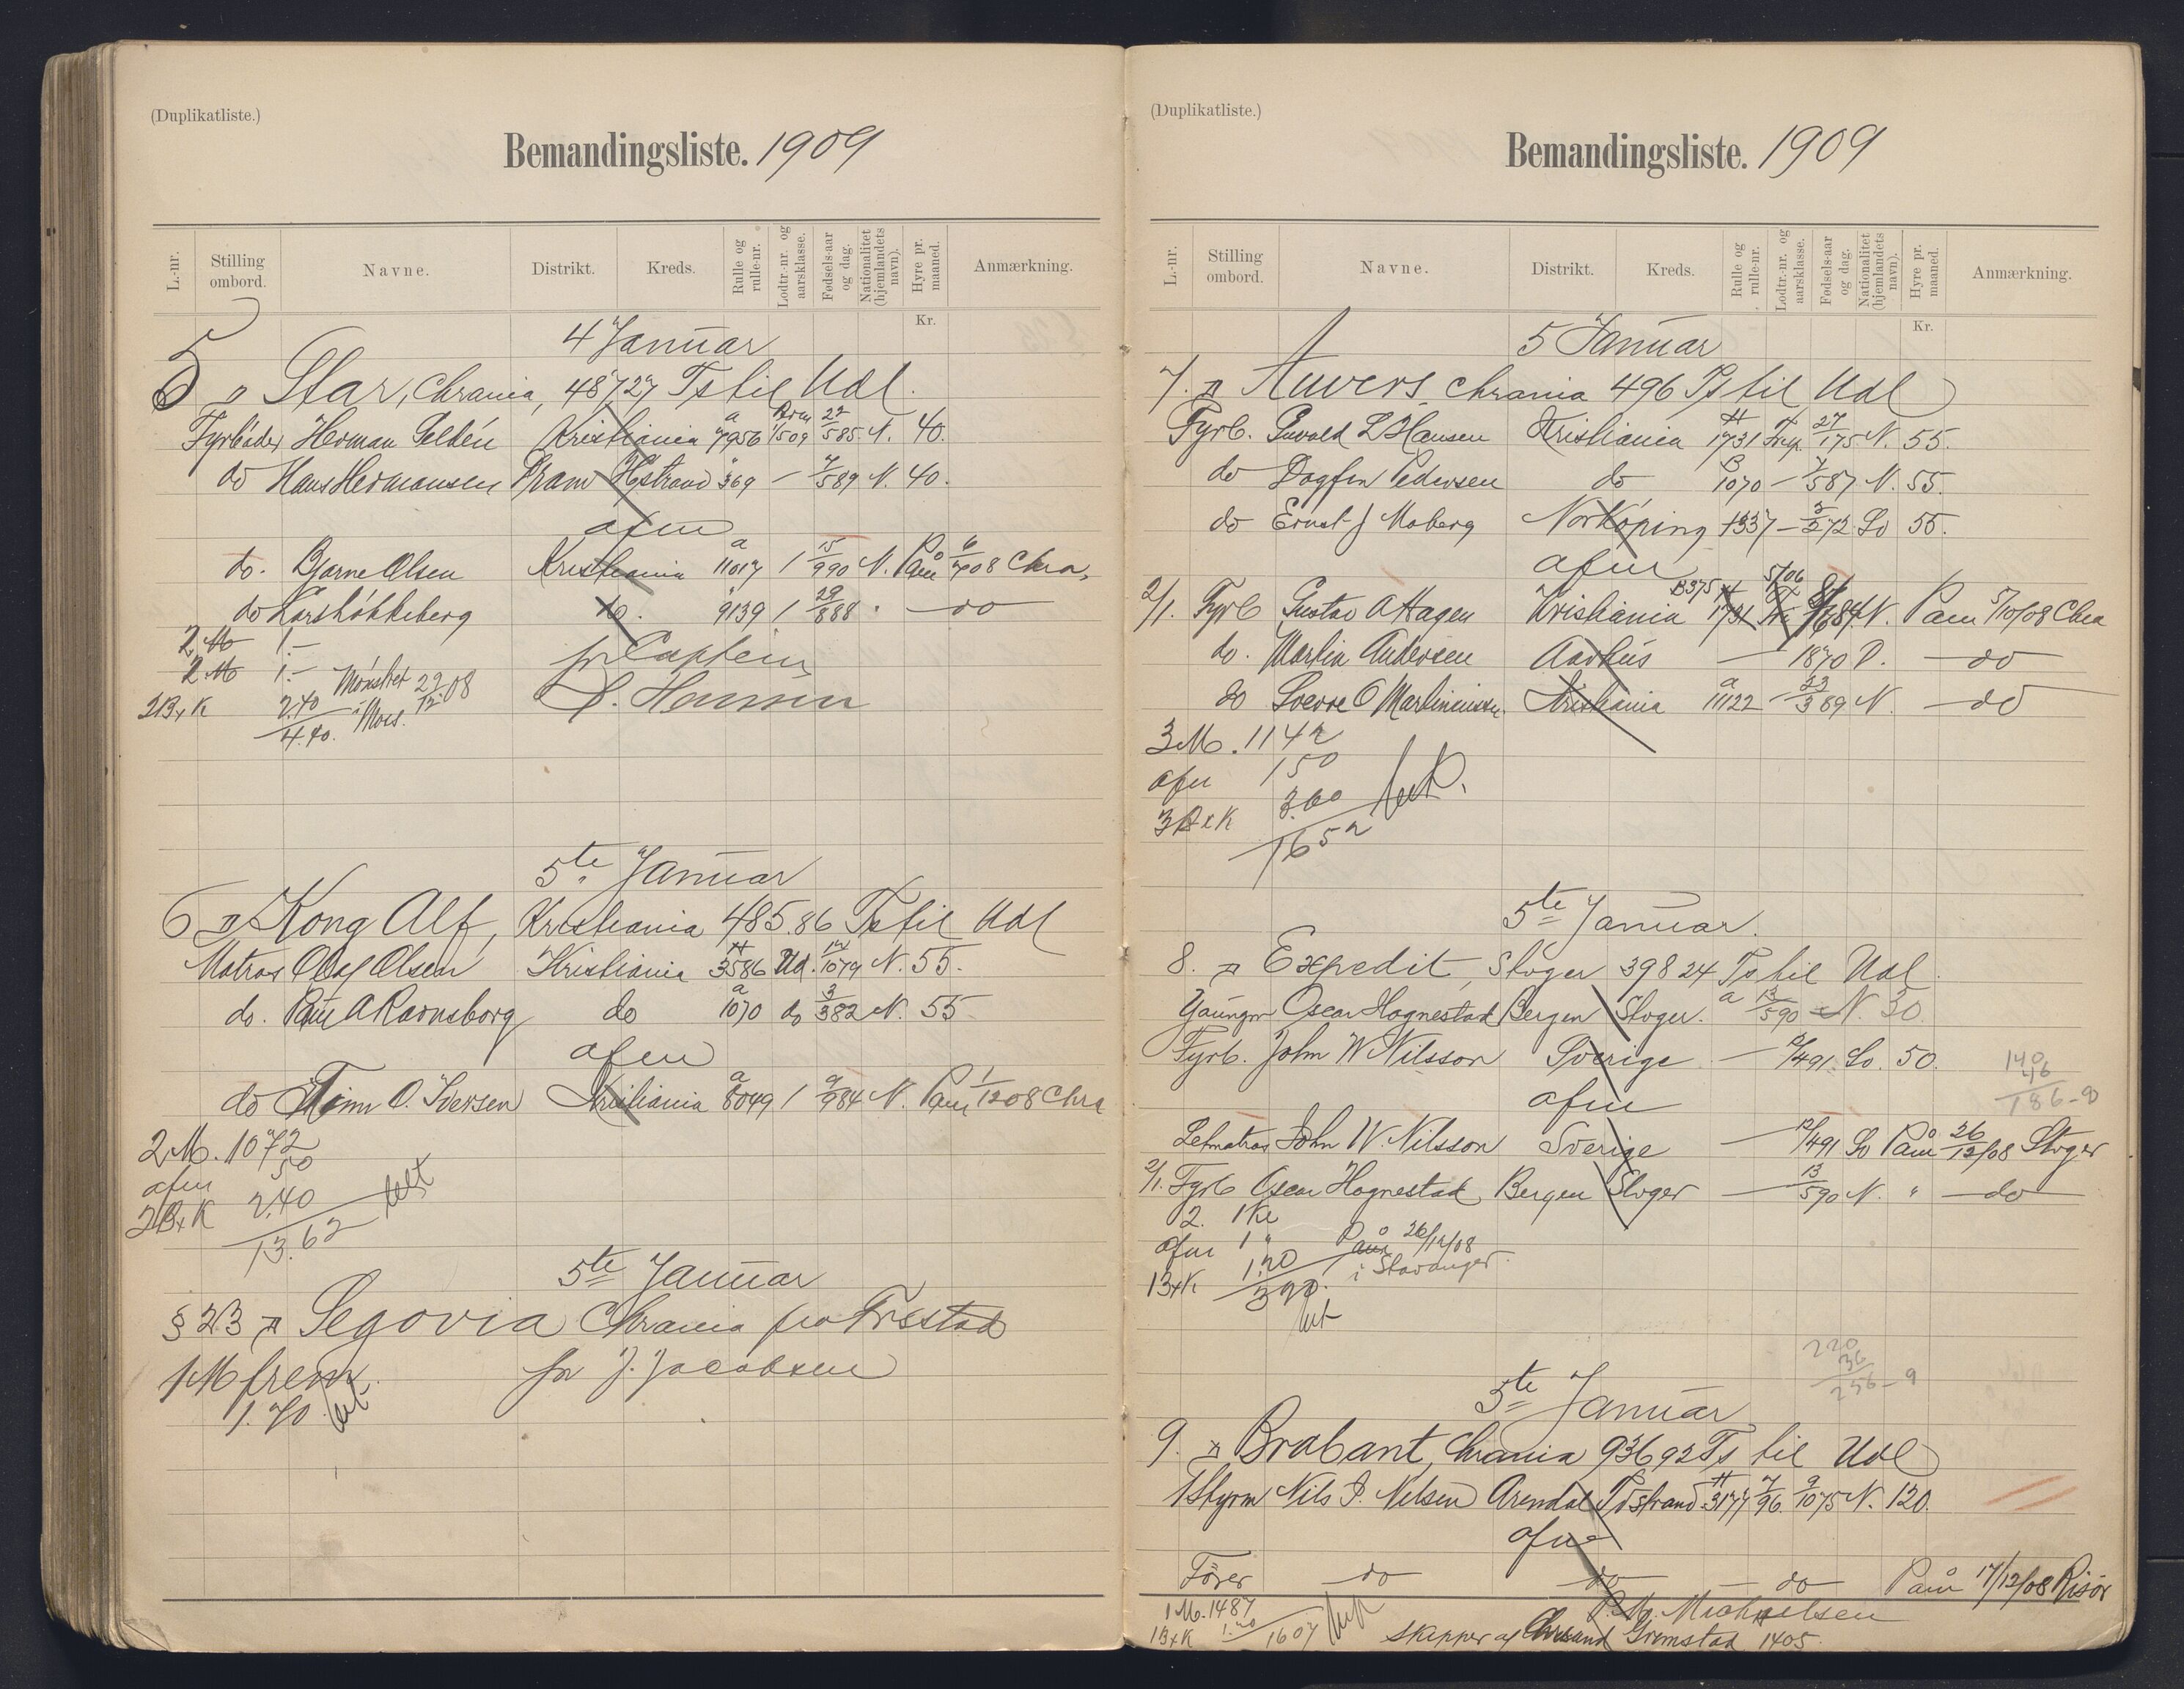 (Duplikatliste.)
Bemandingsliste. 1909
L.-nr. Stilling ombord. Navne. Distrikt. Kreds. Rulle og rulle-nr. Lodtr.-nr. og aarsklasse. Fødsels-aar og dag. Nationalitet (hjemlandets navn). Hyre pr. maaned. Anmærkning.
Kr.
4 Januar
5 Star, Chrania, 487 27 Ts til Udl.
Fyrböder Herman Seldén Kristiania 7956 1/509 22/5 85 N. 40.
do Hans Hermansen Dram Hstrand 369 — 7/5 89 N. 40.
afm
do. Bjarne Olsen Kristiania a 11017 1 15/9 90 N. Påm 6/7 08 Chra,
do Lars Løkkeberg do. 9139 1 29/8 88 " do
2 M 1.-
2 M 1.- Mönstret 29/12 08
2 B x K 2.40 i Moss.
4.40.
for Captein
Hansen
5te Januar
6 Kong Alf, Kristiania 485.86 Ts til Udl
Matros Olaf Olsen Kristiania 3586 Ud. 14/10 79 N. 55.
do. Paul A Ravnsborg do a 1070 do 3/3 82 N. 55
afm
do Finn O. Iversen Kristiania a 8049 1 9/9 84 N. Påm 1/12 08 Chra
2 M. 1072
afm 50
2 B x K 2.40
13.62
5te Januar
§ 23 Segovia Chrania fra Frstad
1 M frem. for J. Jacobsen
1.70
(Duplikatliste.)
Bemandingsliste. 1909
L.-nr. Stilling ombord. Navne. Distrikt. Kreds. Rulle og rulle-nr. Lodtr.-nr. og aarsklasse. Fødsels-aar og dag. Nationalitet (hjemlandets navn). Hyre pr. maaned. Anmærkning.
Kr.
5 Januar
7. Anvers, Chrania 496 Ts til Udl
Fyrb. Huvald L Hansen Kristiania 1731 27/1 75 N. 55.
do Dagfin Pedersen do B 1070 — 7/5 87 N. 55.
do Ernst J Moberg Norköping 1337 — 3/5 72 Sv 55.
afm
B375 5/06
2/1. Fyrb Gustav A Hagen Kristiania 1731 8/6 84 N. Påm 5/10/08 Chra
do. Martin Andersen Aarhus — 1870 D. — do
do Sverre O Martiniussen Kristiania a 11122 — 23/3 89 N. — do
3 M. 1142
afm 150
3 B x K 3.60
1652
5te Januar.
8. Expedit, Stvger 398 24 Ts til Udl.
Youngm Oscar Hognestad Bergen Stvger. a 13/5 90 N. 30
Fyrb. John W Nilsson Sverige — 12/4 91 Sv. 50.
140
46
186-9
afm
Letmatros John W. Nilsson Sverige — 12/4 91 Sv Påm 26/12/08 Stvger
2/1. Fyrb Oscar Hognestad Bergen Stvger — 13/5 90 N. " — do
2. 1 Kr
afm 1 " Påm 26/12/08
1 B x K 1.20 i Stavanger.
3.20.
220
36
256-9
5te Januar
9. Brabant, Chrania 936 92 Ts til Udl
1 Styrm Nils P. Nilsen Arendal Tvstrand 3177 7/96 9/10 75 N. 120.
afm
Förer — do — do — do Påm 17/12/08 Risör
1 M. 1487 Michaelsen
1 B x K 1.20 1607 Skipper af Grimstad 1405